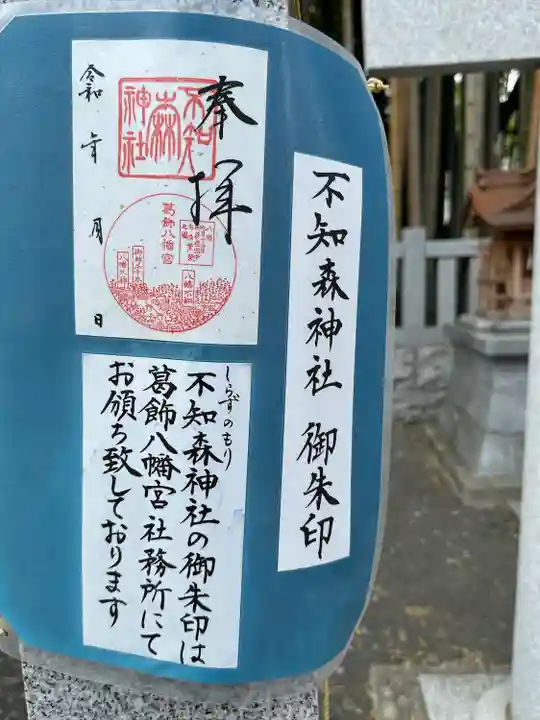 不知森神社 御朱印
奉拝
不知
森
神社
令和 年 月 日
葛飾八幡宮
八幡不知
しらずのもり
不知森神社の御朱印は
葛飾八幡宮社務所にて
お頒ち致しております